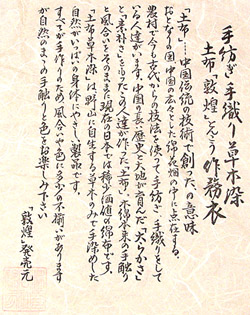 手紡ぎ手織り草木染
土布「敦煌」えぞう作務衣
「土布」…中国伝統の技術で創った、の意味
おとなりの国、中国の広々とした綿花畑の中に点在する
農村で今も古代からの技法を使って手紡ぎ、手織りをして
いる人達がいます。中国の長い歴史と大地が育んだ「大らかさ」
と「素朴さ」をもった、この人達が作った土布は、木綿本来の手触り
と風合いをそのままに現在の日本では稀少価値の綿布です。
「土布草木染」は、野山に自生する草木のみで手染めした
自然がいっぱいの身体にやさしい製品です。
すべてが手作りのため風合いや色に多少の不揃いがあります
が自然のままの手触りと色をお楽しみ下さい
「敦煌」発売元